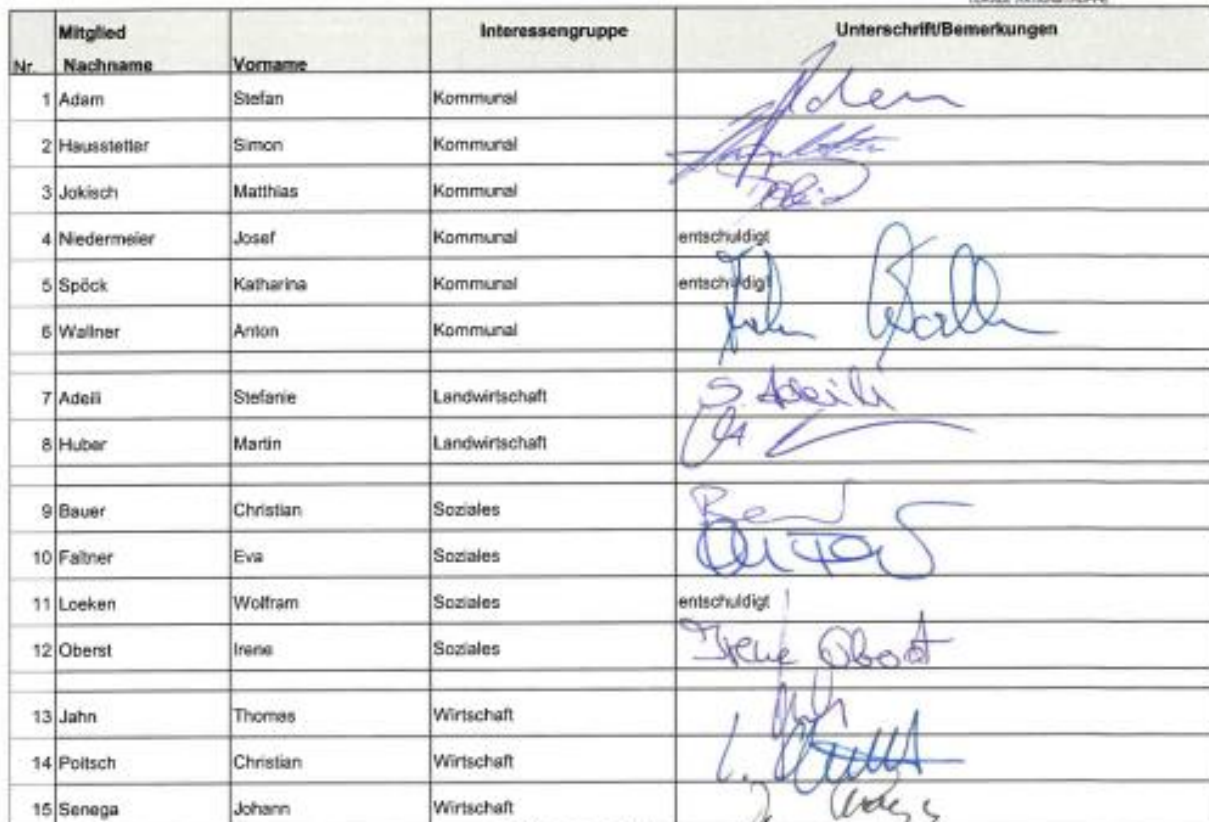 Mitglied Interessengruppe Unterschrift/Bemerkungen
Nr. Nachname Vorname
1 Adam Stefan Kommunal Adam
2 Hausstetter Simon Kommunal
3 Jokisch Matthias Kommunal
4 Niedermeier Josef Kommunal entschuldigt
5 Spöck Katharina Kommunal entschuldigt
6 Wallner Anton Kommunal
7 Adeili Stefanie Landwirtschaft S. Adeili
8 Huber Martin Landwirtschaft
9 Bauer Christian Soziales
10 Faltner Eva Soziales
11 Loeken Wolfram Soziales entschuldigt
12 Oberst Irene Soziales Irene Oberst
13 Jahn Thomas Wirtschaft
14 Poitsch Christian Wirtschaft
15 Senega Johann Wirtschaft